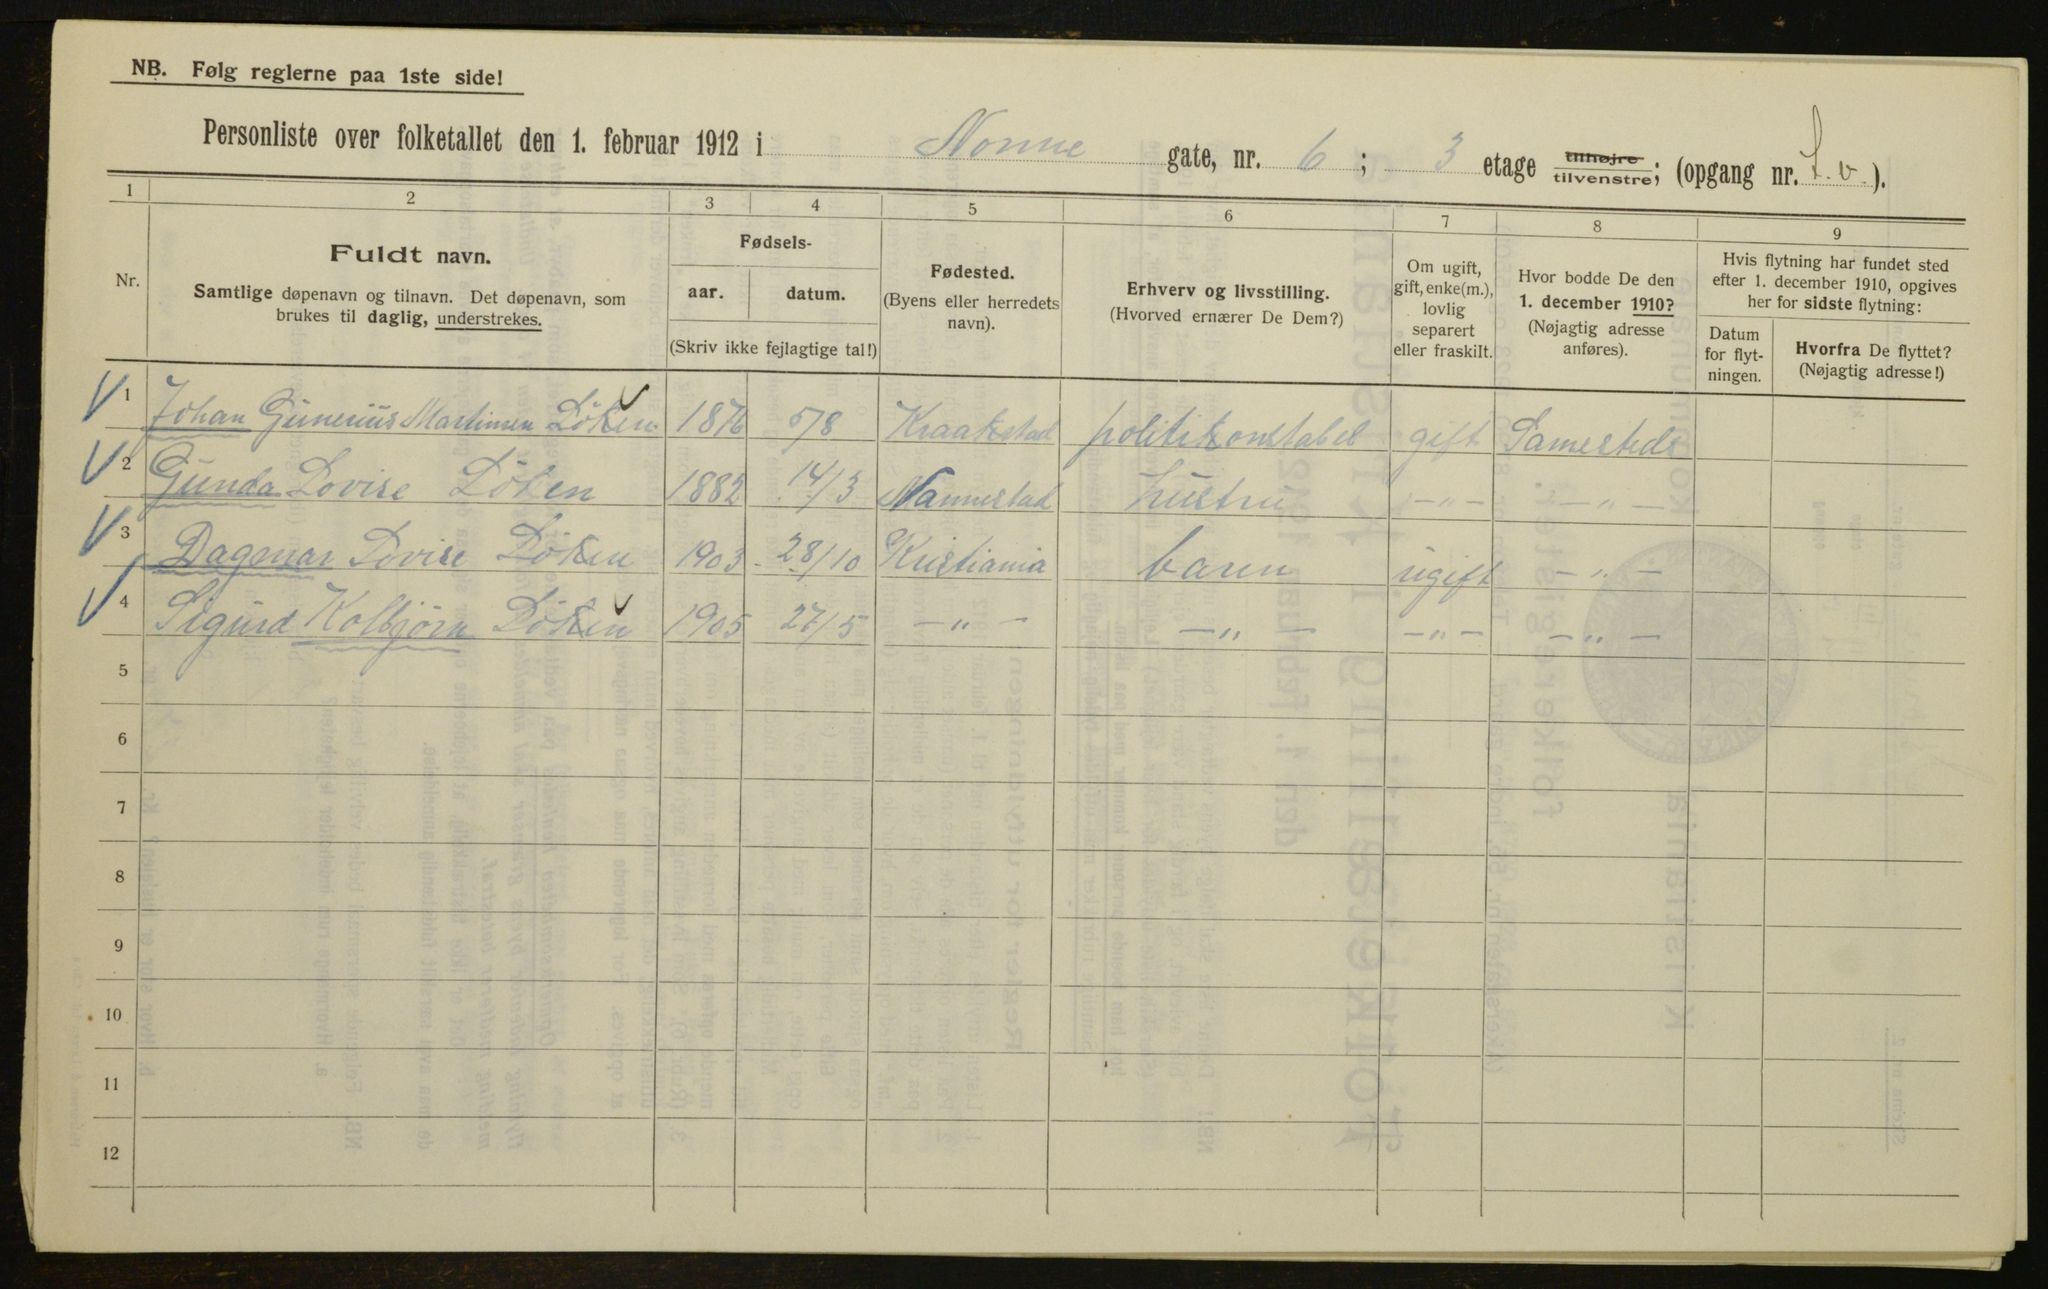 NB. Følg reglerne paa 1ste side!
Personliste over folketallet den 1. februar 1912 i Nonne gate, nr. 6; 3 etage tilhøjre tilvenstre; (opgang nr. L.v.).
1 2 3 4 5 6 7 8 9
Nr.
Fuldt navn.
Samtlige døpenavn og tilnavn. Det døpenavn, som
brukes til daglig, understrekes.
Fødsels-
aar. datum.
(Skriv ikke fejlagtige tal!)
Fødested.
(Byens eller herredets
navn).
Erhverv og livsstilling.
(Hvorved ernærer De Dem?)
Om ugift,
gift, enke(m.),
lovlig
separert
eller fraskilt.
Hvor bodde De den
1. december 1910?
(Nøjagtig adresse
anføres).
Hvis flytning har fundet sted
efter 1. december 1910, opgives
her for sidste flytning:
Datum
for flyt-
ningen.
Hvorfra De flyttet?
(Nøjagtig adresse!)
1 Johan Gunerius Martinsen Löken 1876 5/8 Kraakstad politikonstabel gift Samesteds
2 Gunda Lovise Löken 1882 14/3 Nannestad hustru —"— —"—
3 Dagmar Lovise Löken 1903 28/10 Kristiania baren ugift —"—
4 Sigurd Kolbjörn Löken 1905 27/5 —"— —"— —"— —"—
5
6
7
8
9
10
11
12